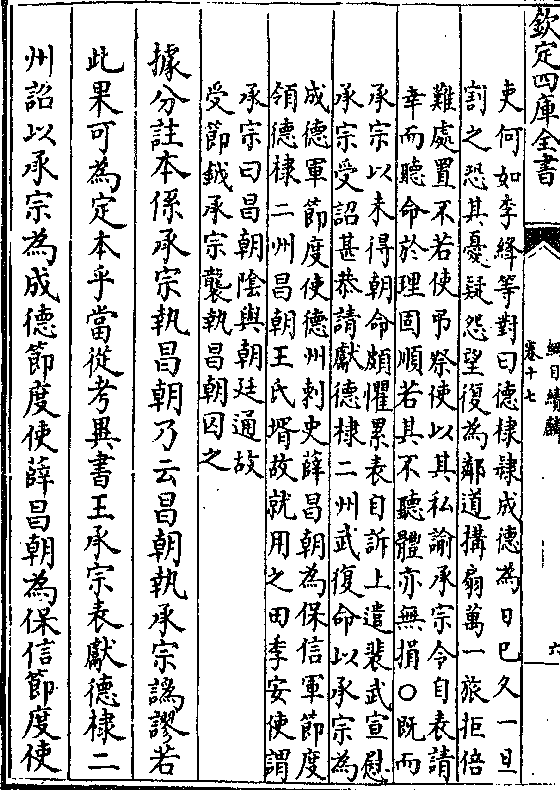 欽定四庫全書
綱目續麟
卷十七
六
吏何如李絳等對曰德棣隷成德為日已久一旦
割之恐其憂疑怨望復為鄰道搆扇萬一旅拒倍
難處置不若使弔祭使以其私諭承宗令自表請
幸而聽命於理固順若其不聽體亦無損○既而
承宗以未得朝命頗懼累表自訴上遣裴武宣慰
承宗受詔甚恭請獻德棣二州武復命以承宗為
成德軍節度使德州刺史薛昌朝為保信軍節度
領德棣二州昌朝王氏壻故就用之田季安使謂
承宗曰昌朝陰與朝廷通故
受節鉞承宗襲執昌朝囚之
據分註本係承宗執昌朝乃云昌朝執承宗譌謬若
此果可為定本乎當從考異書王承宗表獻德棣二
州詔以承宗為成德節度使薛昌朝為保信節度使